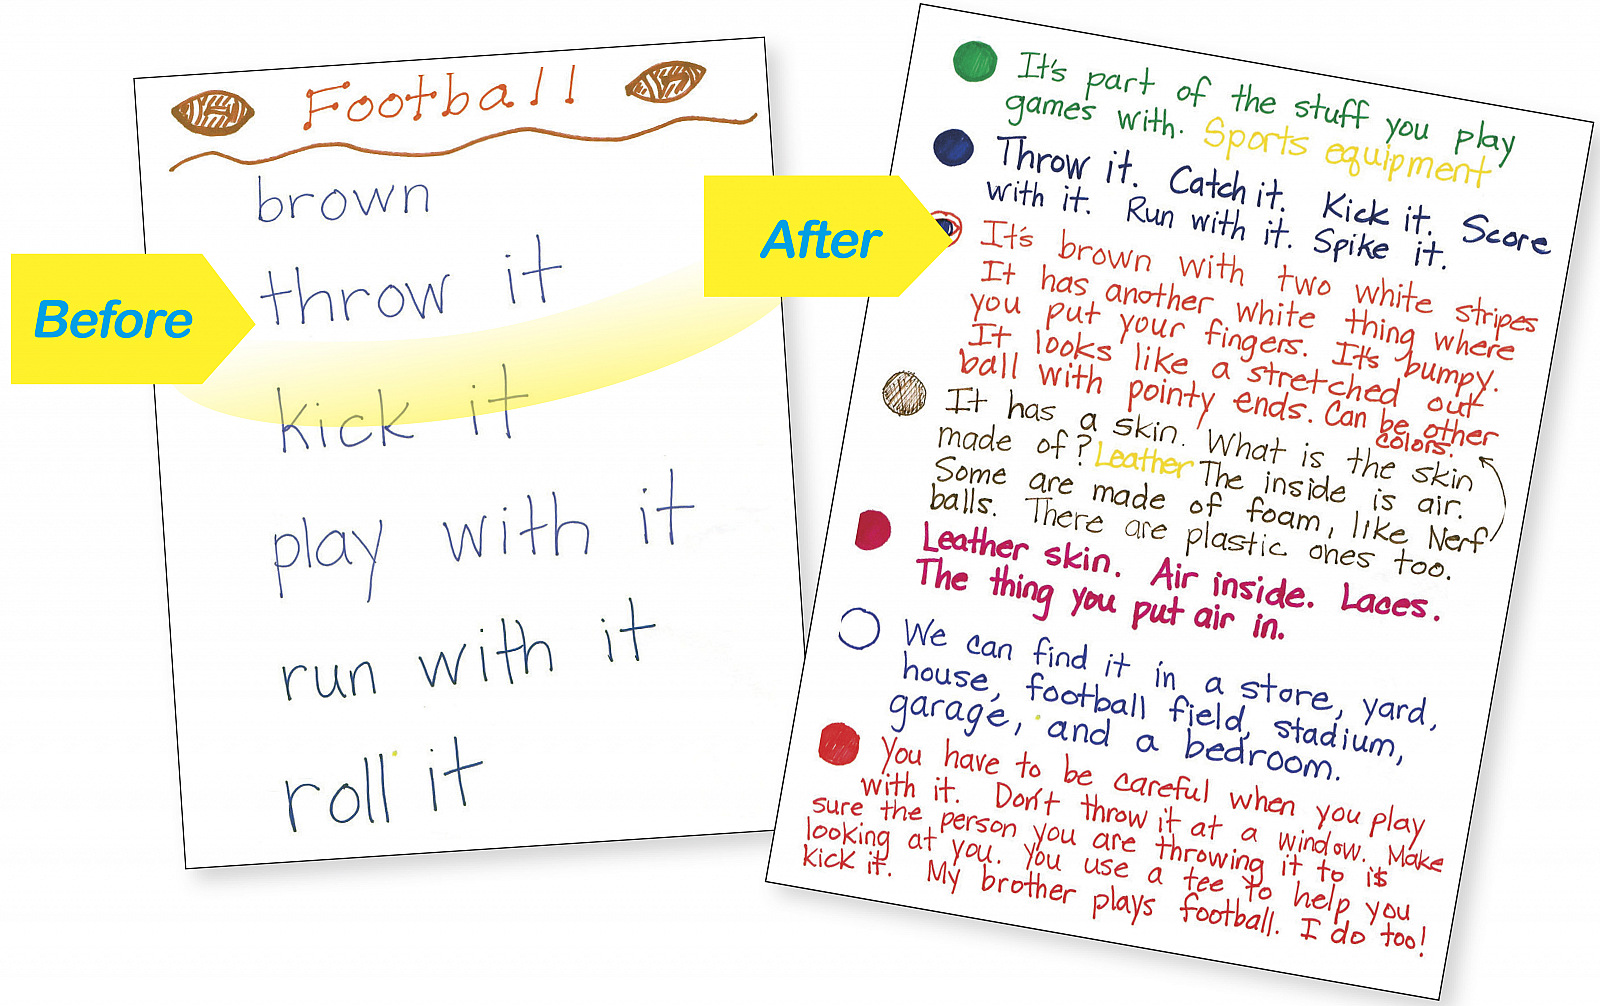 Football
brown
Before
throw it
kick it
play with it
run with it
roll it
After
It's part of the stuff you play
games with. Sports equipment
Throw it. Catch it. Kick it. Score
with it. Run with it. Spike it.
It's brown with two white stripes
It has another white thing where
you put your fingers. It's bumpy.
It looks like a stretched out
ball with pointy ends. Can be other
colors.
It has a skin. What is the skin
made of? Leather The inside is air.
Some are made of foam, like Nerf
balls. There are plastic ones too.
Leather skin. Air inside. Laces.
The thing you put air in.
We can find it in a store, yard,
house, football field, stadium,
garage, and a bedroom.
You have to be careful when you play
with it. Don't throw it at a window. Make
sure the person you are throwing it to is
looking at you. You use a tee to help you
kick it. My brother plays football. I do too!